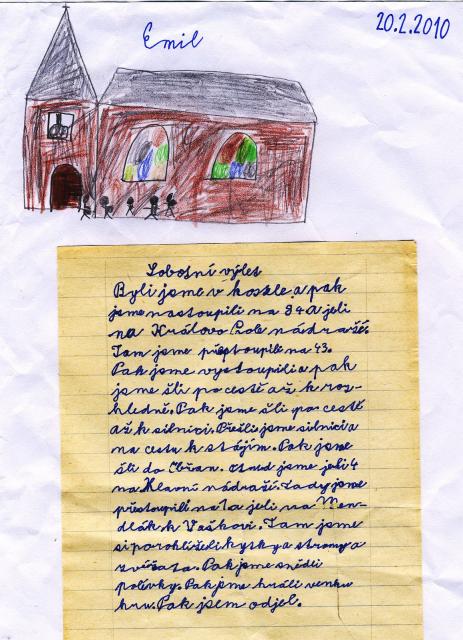 Emil
20.2.2010
Sobotní výlet
Byli jsme v kostele a pak
jsme nastoupili na 84 a jeli
na Královo Pole nádraží.
Tam jsme přestoupili na 43.
Pak jsme vystoupili a pak
jsme šli po cestě až k roz-
hledně. Pak jsme šli po cestě
až k silnici. Přešli jsme silnici a
na cestu k stájím. Pak jsme
šli do Obřan. Otud jsme jeli 4
na Hlavní nádraží. Tady jsme
přestoupili na 1 a jeli na Men-
dlák k Vaškovi. Tam jsme
si porohlíželi kytky a stromy a
zvířata. Pak jsme snědli
polívky. Pak jsme hráli venku
hru. Pak jsem odjel.